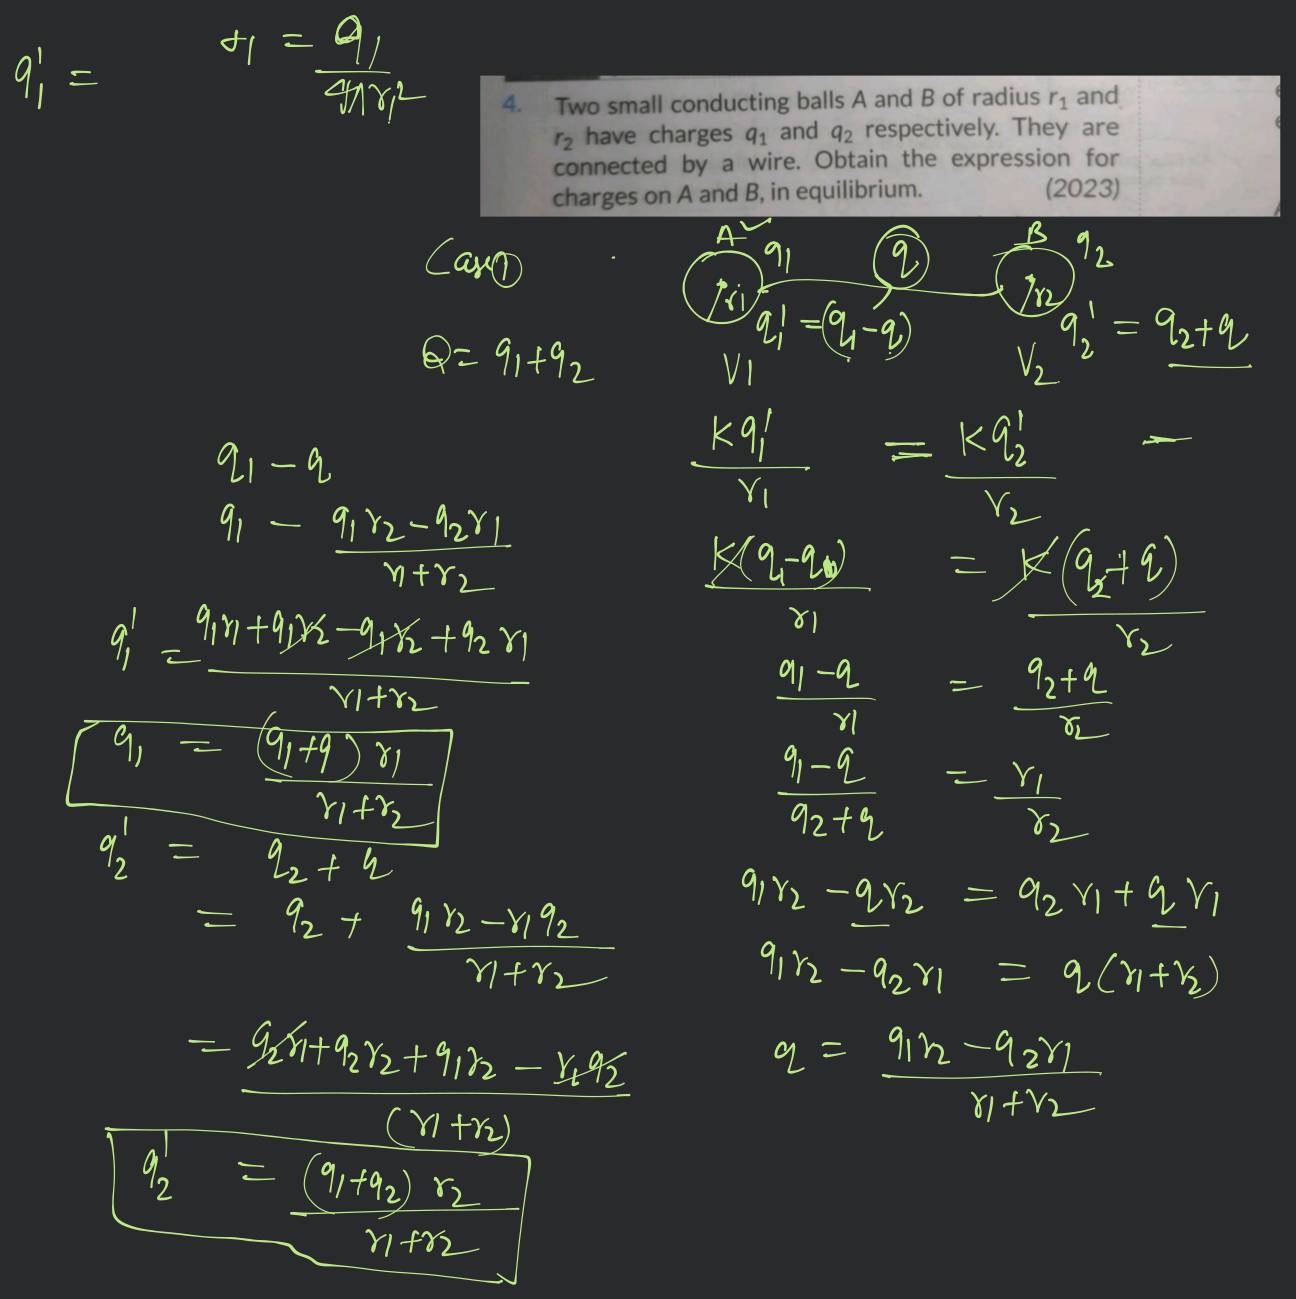 q₁' =
σ₁ = Q₁ / 4πr₁²
4. Two small conducting balls A and B of radius r₁ and
r₂ have charges q₁ and q₂ respectively. They are
connected by a wire. Obtain the expression for
charges on A and B, in equilibrium. (2023)
Case ①
A q₁ q B q₂
r₁ r₂
q₁' = (q₁-q) q₂' = q₂+q
Q = q₁+q₂
V₁ V₂
Kq₁' / r₁ = Kq₂' / r₂ —
K(q₁-q) / r₁ = K(q₂+q) / r₂
q₁-q / r₁ = q₂+q / r₂
q₁-q / q₂+q = r₁ / r₂
q₁r₂ - qr₂ = q₂r₁ + qr₁
q₁r₂ - q₂r₁ = q(r₁+r₂)
q = q₁r₂ - q₂r₁ / r₁+r₂
q₁ - q
q₁ - q₁r₂ - q₂r₁ / r₁+r₂
q₁' = q₁r₁ + q₁r₂ - q₁r₂ + q₂r₁ / r₁+r₂
q₁ = (q₁+q) r₁ / r₁+r₂
q₂' = q₂ + q
= q₂ + q₁r₂ - r₁q₂ / r₁+r₂
= q₂r₁ + q₂r₂ + q₁r₂ - r₁q₂ / (r₁+r₂)
q₂' = (q₁+q₂) r₂ / r₁+r₂